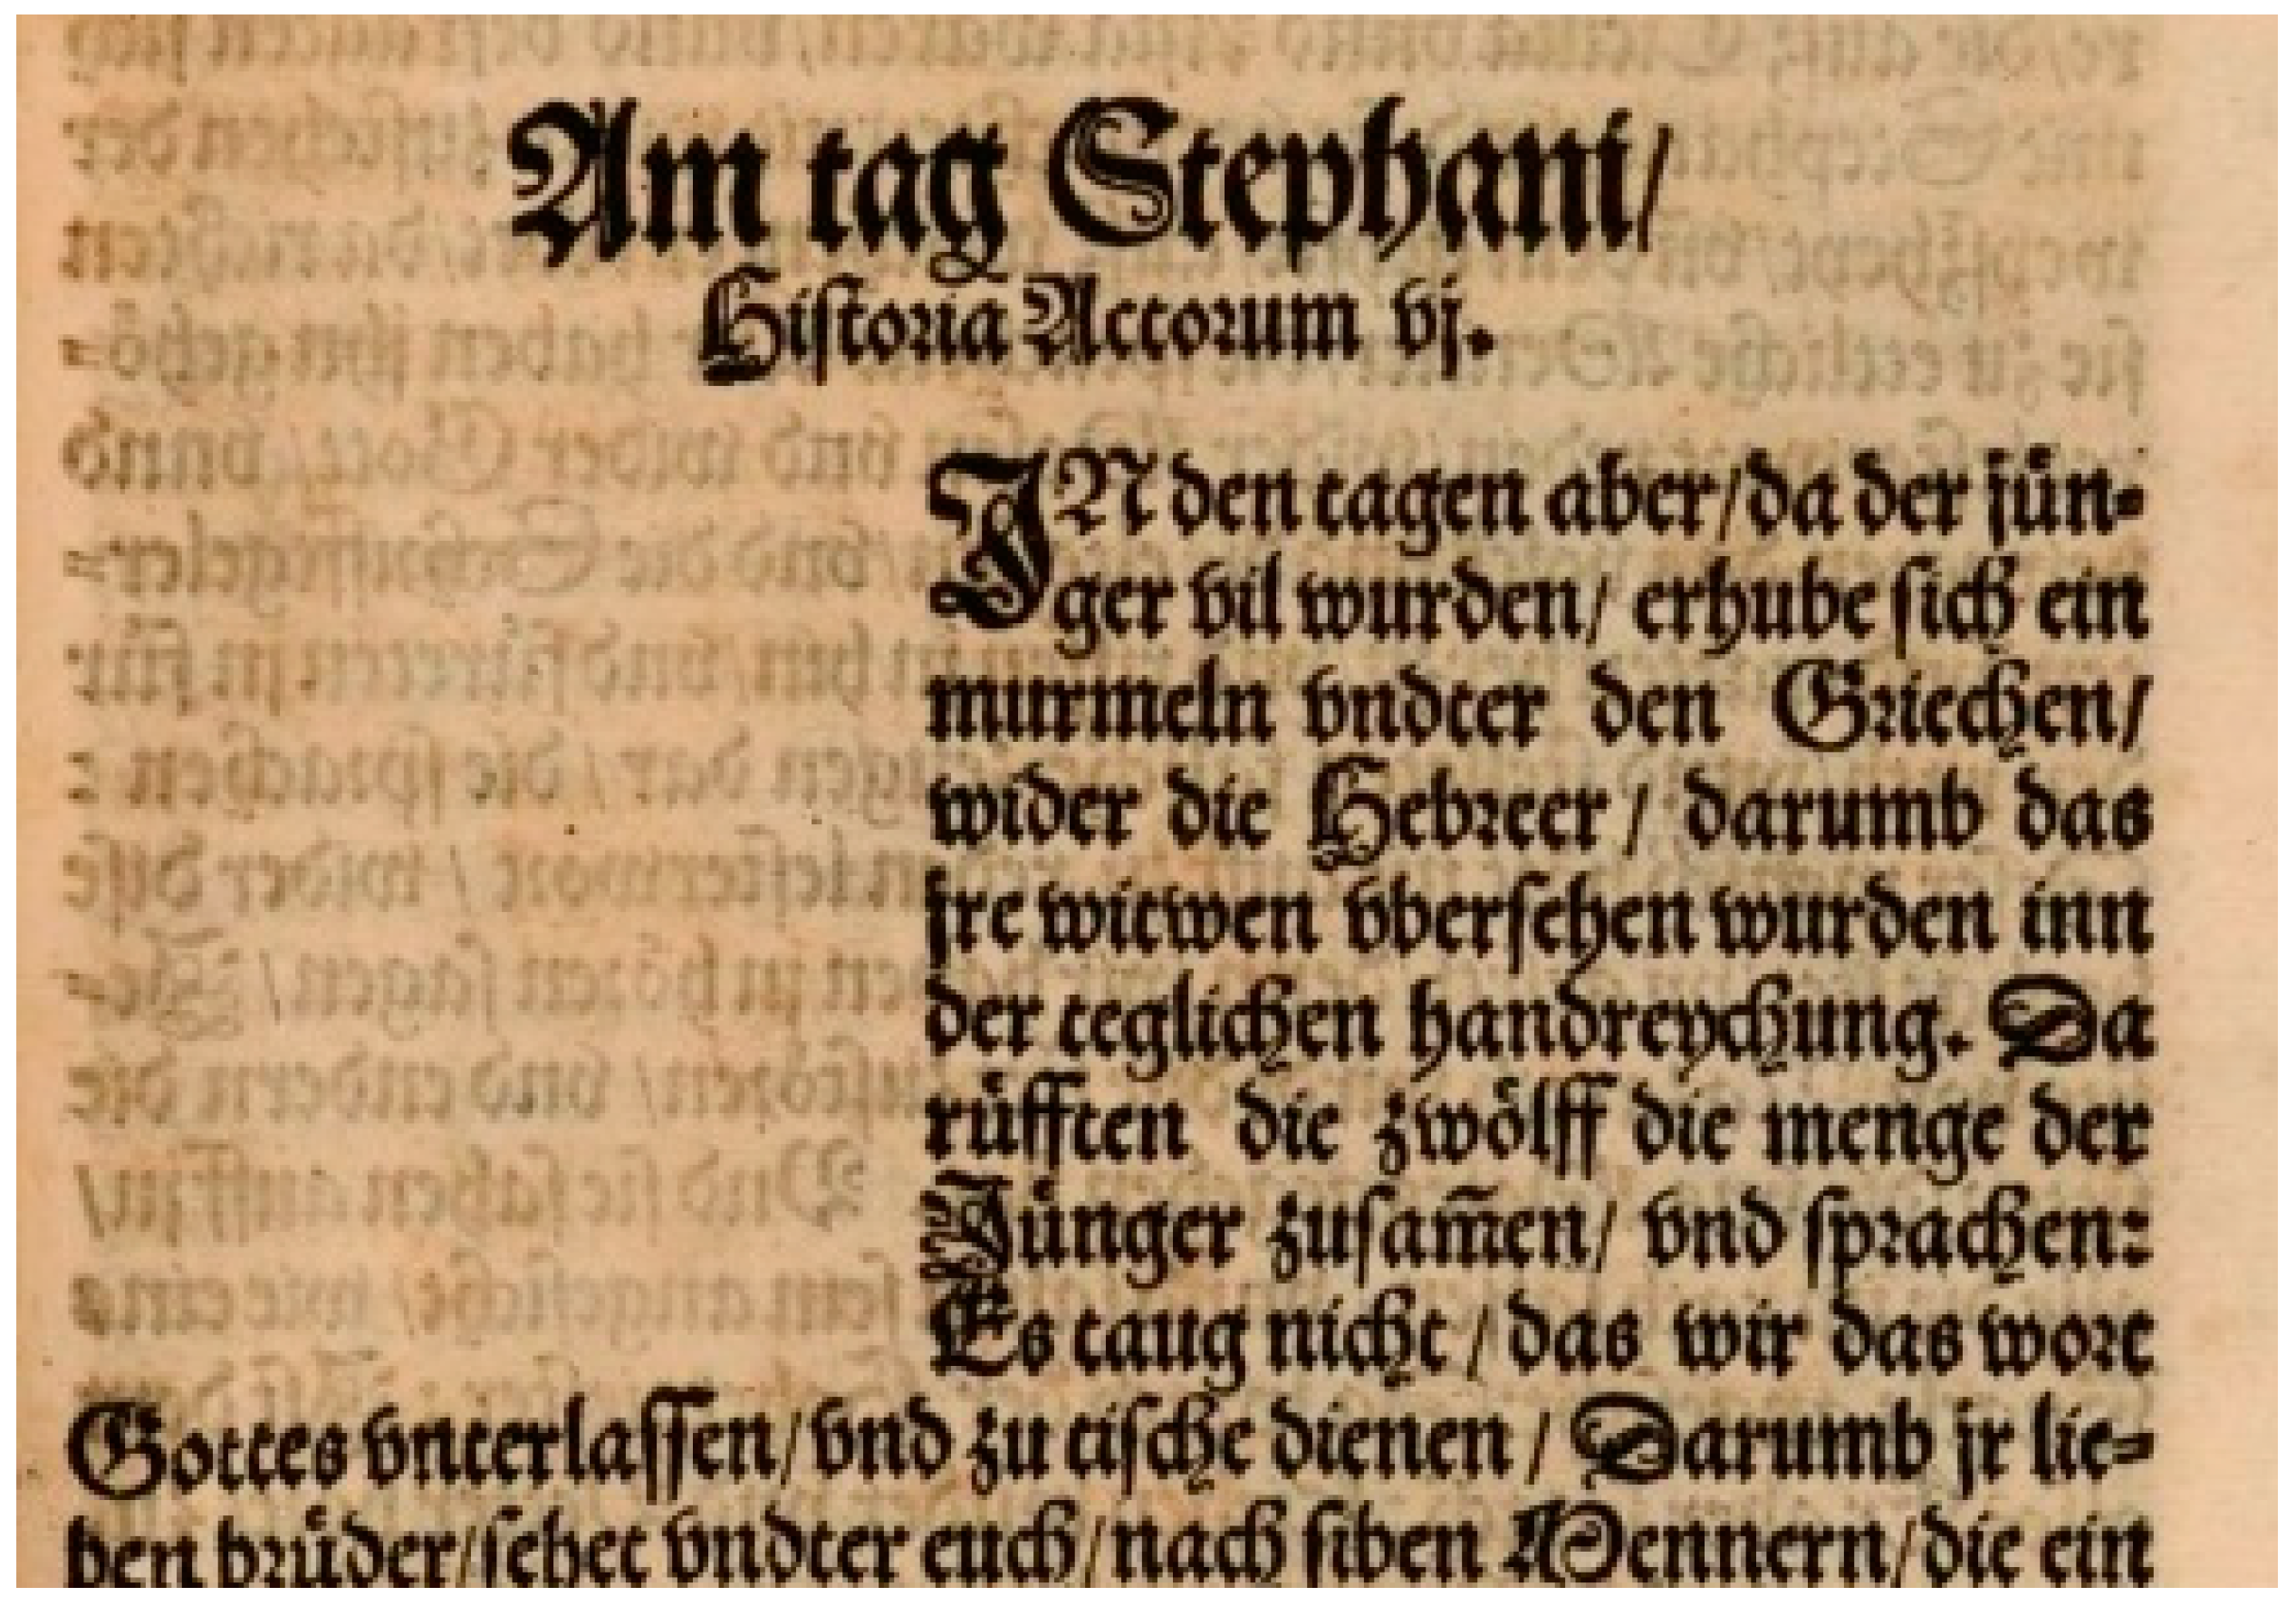 Am tag Stephani/
Hiſtoria Actorum vj.
IN den tagen aber/da der jün-
ger vil wurden/ erhube ſich ein
murmeln vndter den Griechen/
wider die Hebreer/ darumb das
jre witwen vberſehen wurden inn
der teglichen handreychung. Da
rüfften die zwölff die menge der
Jünger zuſam̃en/ vnd ſprachen:
Es taug nicht/das wir das wort
Gottes vnterlaſſen/vnd zu tiſche dienen/Darumb jr lie-
ben brüder/ſehet vndter euch/nach ſiben Mennern/die ein